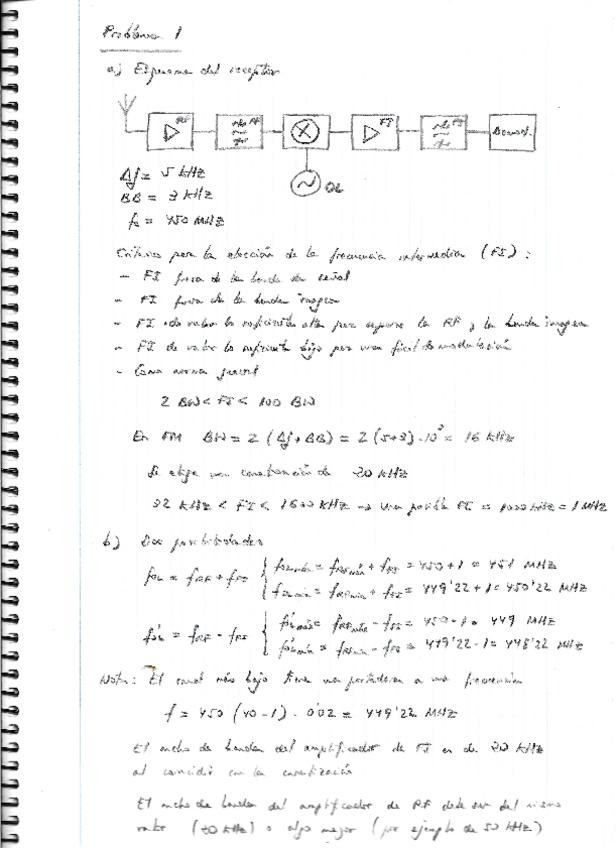 Problema 1
a) Esquema del receptor
RF RF FI FI Demod.
OL
Δf = 5 kHz
BB = 3 kHz
fo = 450 MHz
Criterios para la elección de la frecuencia intermedia (FI):
- FI fuera de la banda de señal
- FI fuera de la banda imagen
- FI de valor lo suficiente alta para separar la RF y la banda imagen
- FI de valor lo suficiente bajo para una fácil demodulación
- Como norma general
2 BW < FI < 100 BW
En FM BW = 2 (Δf + BB) = 2 (5+3)·10³ = 16 kHz
Se elige una canalización de 20 kHz
32 kHz < FI < 1600 kHz → una posible FI = 1000 kHz = 1 MHz
b) Dos posibilidades
fOL = fRF + fFI { fOLmáx = fRFmáx + fFI = 450 + 1 = 451 MHz
fOLmín = fRFmín + fFI = 449'22 + 1 = 450'22 MHz
f'OL = fRF - fFI { f'OLmáx = fRFmáx - fFI = 450 - 1 = 449 MHz
f'OLmín = fRFmín - fFI = 449'22 - 1 = 448'22 MHz
Nota: El canal más bajo tiene una portadora a una frecuencia
f = 450 (40-1) · 0'02 = 449'22 MHz
El ancho de banda del amplificador de FI es de 20 kHz
al coincidir con la canalización
El ancho de banda del amplificador de RF debe ser del mismo
valor (20 kHz) o algo mejor (por ejemplo de 50 kHz)